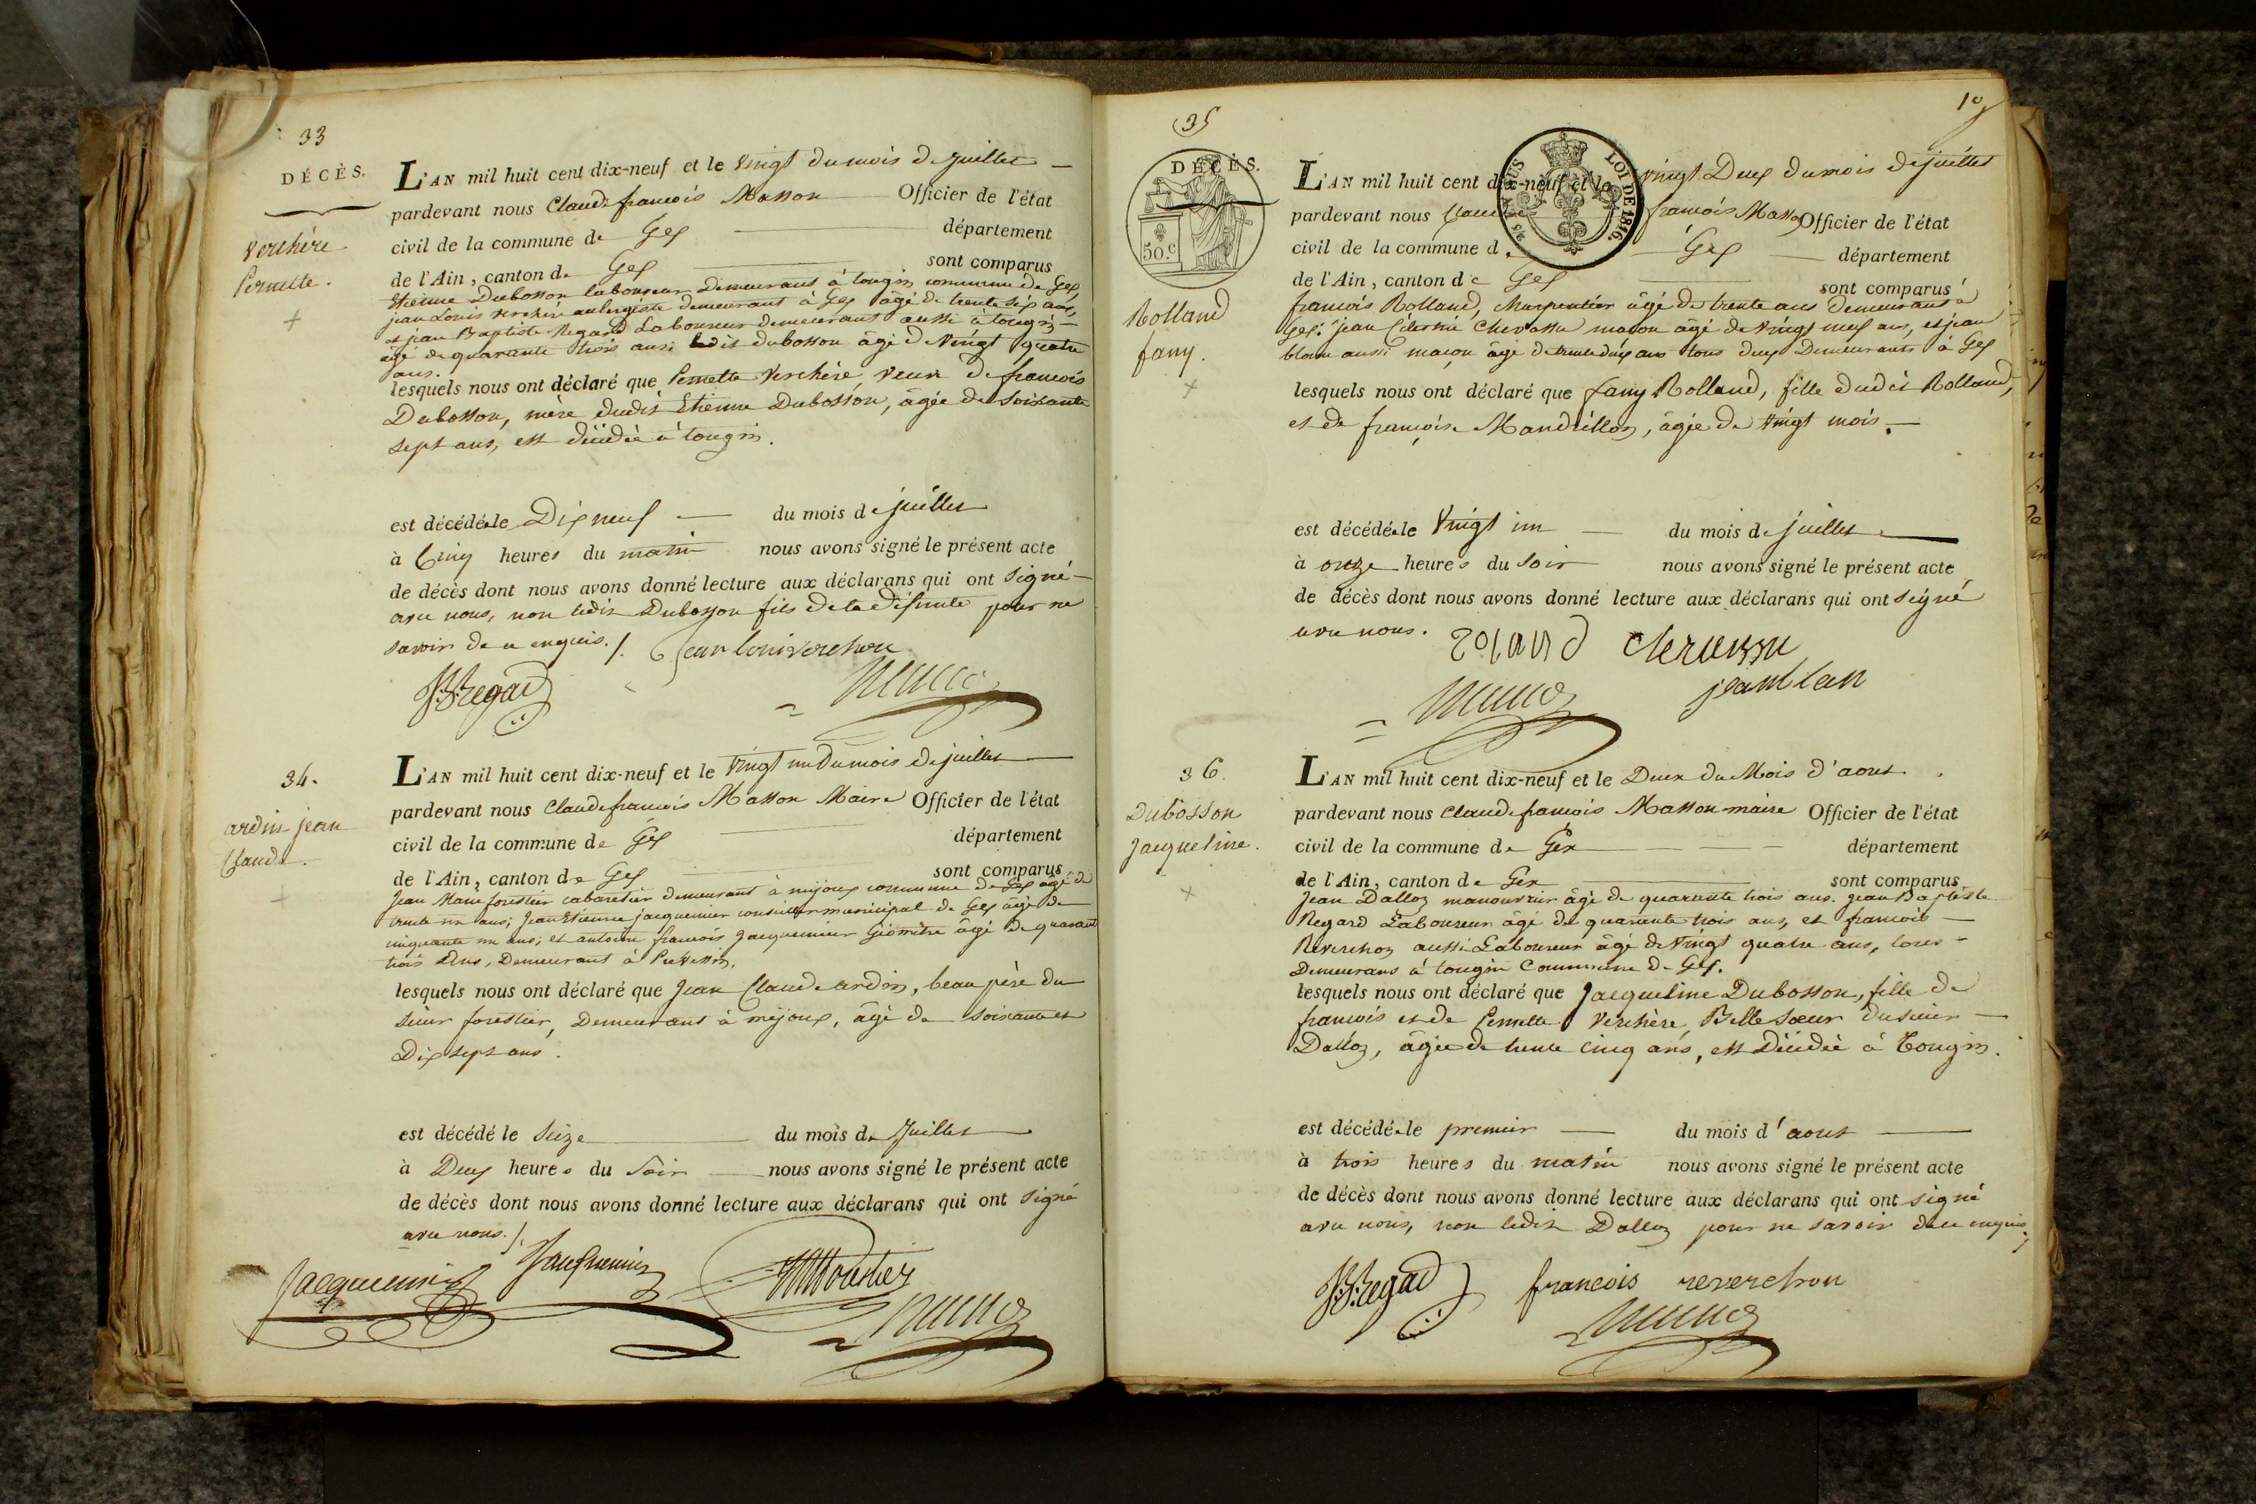 33
DÉCÈS.
Verchère
Pernette.
L'AN mil huit cent dix-neuf et le vingt du mois de juillet
pardevant nous Claude françois Masson Officier de l'état
civil de la commune de Gex département
de l'Ain, canton de Gex sont comparus
Etienne Dubosson laboureur demeurant à tougin commune de Gex,
jean Louis verchère aubergiste demeurant à Gex âgé de trente six ans,
et jean Baptiste Regard Laboureur demeurant aussi à tougin
âgé de quarante trois ans; ledit dubosson âgé de vingt quatre
ans.
lesquels nous ont déclaré que Pernette Verchère, veuve de françois
Dubosson, mère dudit Etienne Dubosson, âgée de soixante
sept ans, est décédée à tougin.
est décédée le Dix neuf du mois de juillet
à Cinq heures du matin nous avons signé le présent acte
de décès dont nous avons donné lecture aux déclarans qui ont signé
avec nous, non ledit Dubosson fils de la défunte pour ne
savoir de ce enquis./.
Jean louis verchere
JBRegad
34.
ardin jean
Claude.
L'AN mil huit cent dix-neuf et le vingt un du mois de juillet
pardevant nous Claude françois Masson Maire Officier de l'état
civil de la commune de Gex département
de l'Ain, canton de Gex sont comparus
Jean Marie forestier cabaretier demeurant à mijoux commune de Gex âgé de
trente un ans; Jean Etienne jacquemier conseiller municipal de Gex âgé de
cinquante un ans; et antoine françois Jacquemier Géomètre âgé de quarante
trois ans, Demeurant à Prevessin.
lesquels nous ont déclaré que Jean Claude ardin, beau père du
sieur forestier, Demeurant à mijoux, âgé de soixante et
Dix sept ans.
est décédé le seize du mois de Juillet
à Deux heures du soir nous avons signé le présent acte
de décès dont nous avons donné lecture aux déclarans qui ont signé
avec nous./.
Jacquemier Jacquemier
35
DÉCÈS.
50.c
LOI DE 1816.
Rolland
fany.
L'AN mil huit cent dix-neuf et le vingt Deux du mois de juillet
pardevant nous Claude françois Masson Officier de l'état
civil de la commune de Gex département
de l'Ain, canton de Gex sont comparus
françois Rolland, charpentier âgé de trente ans demeurant à
Gex. jean Etienne Chevassu maçon âgé de vingt neuf ans, et jean
blanc aussi maçon âgé de trente dix ans tous deux Demeurants à Gex
lesquels nous ont déclaré que fany Rolland, fille dudit Rolland,
et de françoise Mandrillon, âgée de vingt mois.
est décédée le vingt un du mois de juillet
à onze heures du soir nous avons signé le présent acte
de décès dont nous avons donné lecture aux déclarans qui ont signé
avec nous.
Roland
jean blan
36.
Dubosson
Jacqueline.
L'AN mil huit cent dix-neuf et le Deux du Mois d'aout
pardevant nous Claude françois Masson maire Officier de l'état
civil de la commune de Gex département
de l'Ain, canton de Gex sont comparus
Jean Dalloz manouvrier âgé de quarante trois ans. jean Baptiste
Regard Laboureur âgé de quarante trois ans, et françois
Reverchon aussi Laboureur âgé de vingt quatre ans, tous
Demeurans à tougin Commune de Gex.
lesquels nous ont déclaré que Jacqueline Dubosson, fille de
françois et de Pernette Verchère, Belle Sœur du sieur
Dalloz, âgée de trente cinq ans, est décédée à Tougin.
est décédée le premier du mois d'aout
à trois heures du matin nous avons signé le présent acte
de décès dont nous avons donné lecture aux déclarans qui ont signé
avec nous, non ledit Dalloz pour ne savoir de ce enquis./
JBRegad francois reverchon